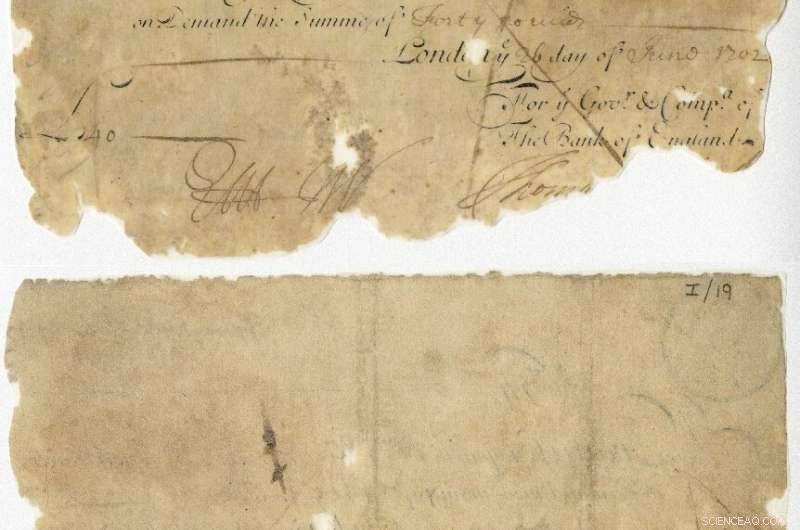 on Demand the Summe of Forty pounds
London yͤ 26 day of June 1702
For yͤ Govʳ & Compᵃ of
£ 40
The Bank of England
Thoma
I/19
SCIENCEAQ.COM